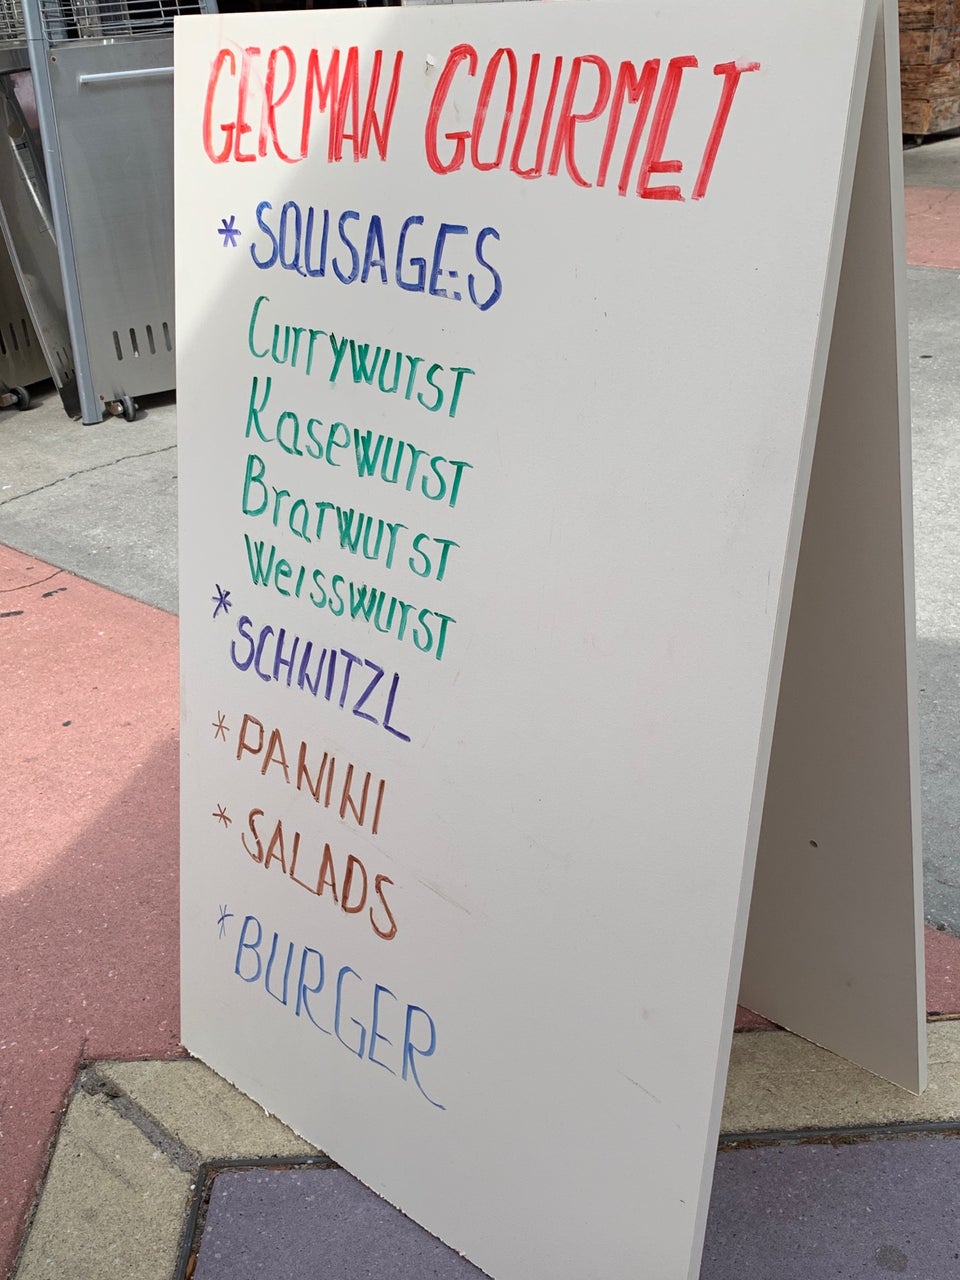 GERMAN GOURMET
* SQUSAGES
Currywurst
Kasewurst
Bratwurst
Weisswurst
* SCHNITZL
* PANINI
* SALADS
* BURGER